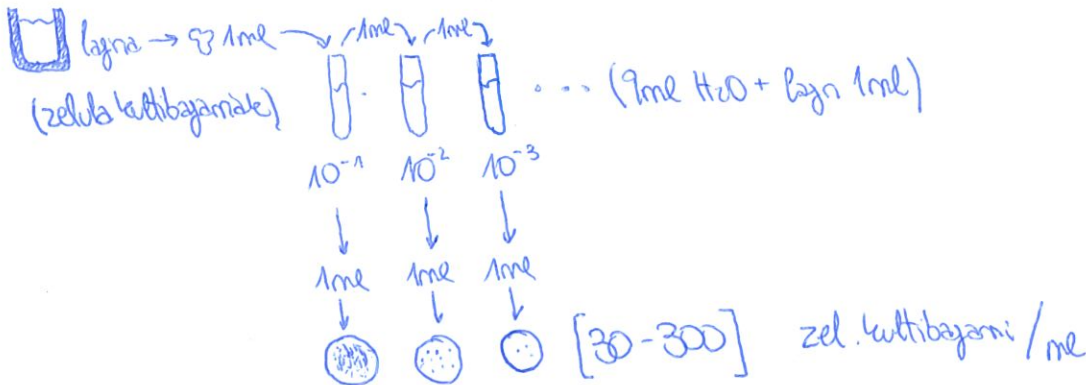 lagna → 1ml 1ml 1ml
(zelula kultibagarriak) ... (9ml H₂O + lagin 1ml)
10⁻¹ 10⁻² 10⁻³
1ml 1ml 1ml
[30-300] zel. kultibagarri/ml